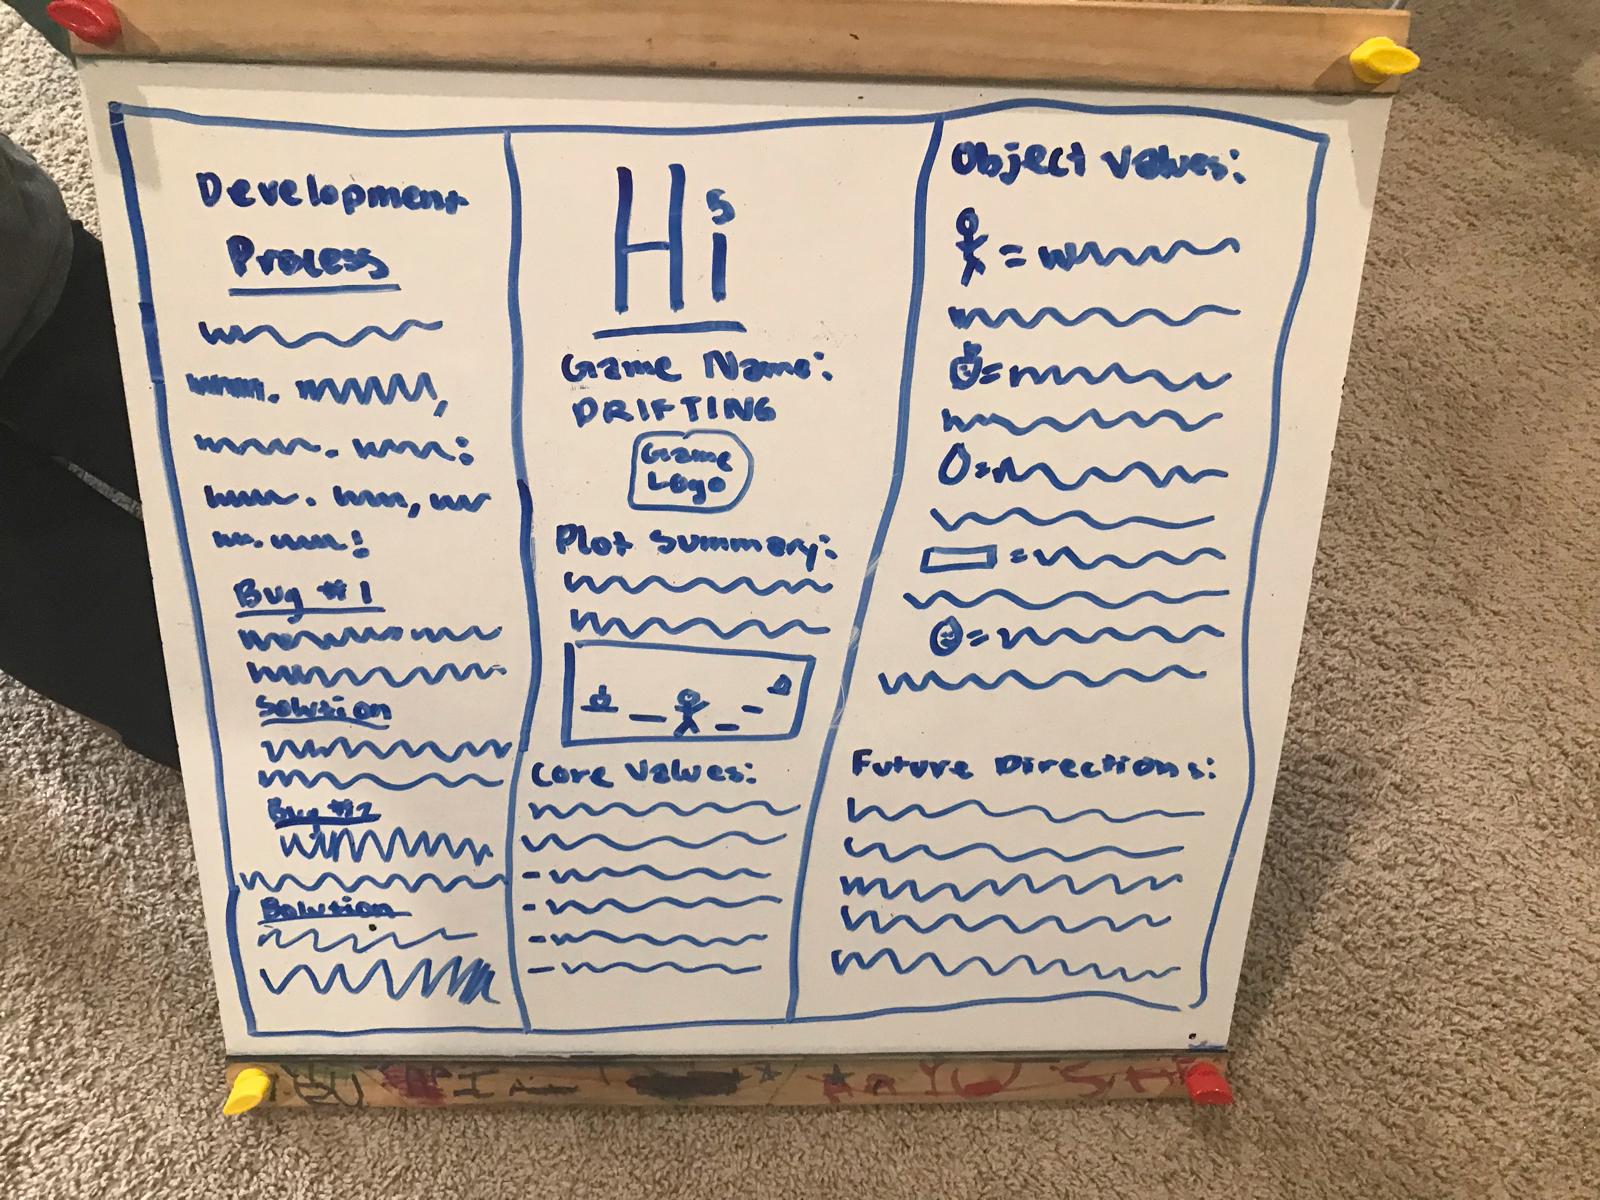 Development
Process
Bug #1
Solution
Bug #2
Solution
Hi
Game Name:
DRIFTING
Game
Logo
Plot Summary:
Core Values:
Object Values:
Future Directions: